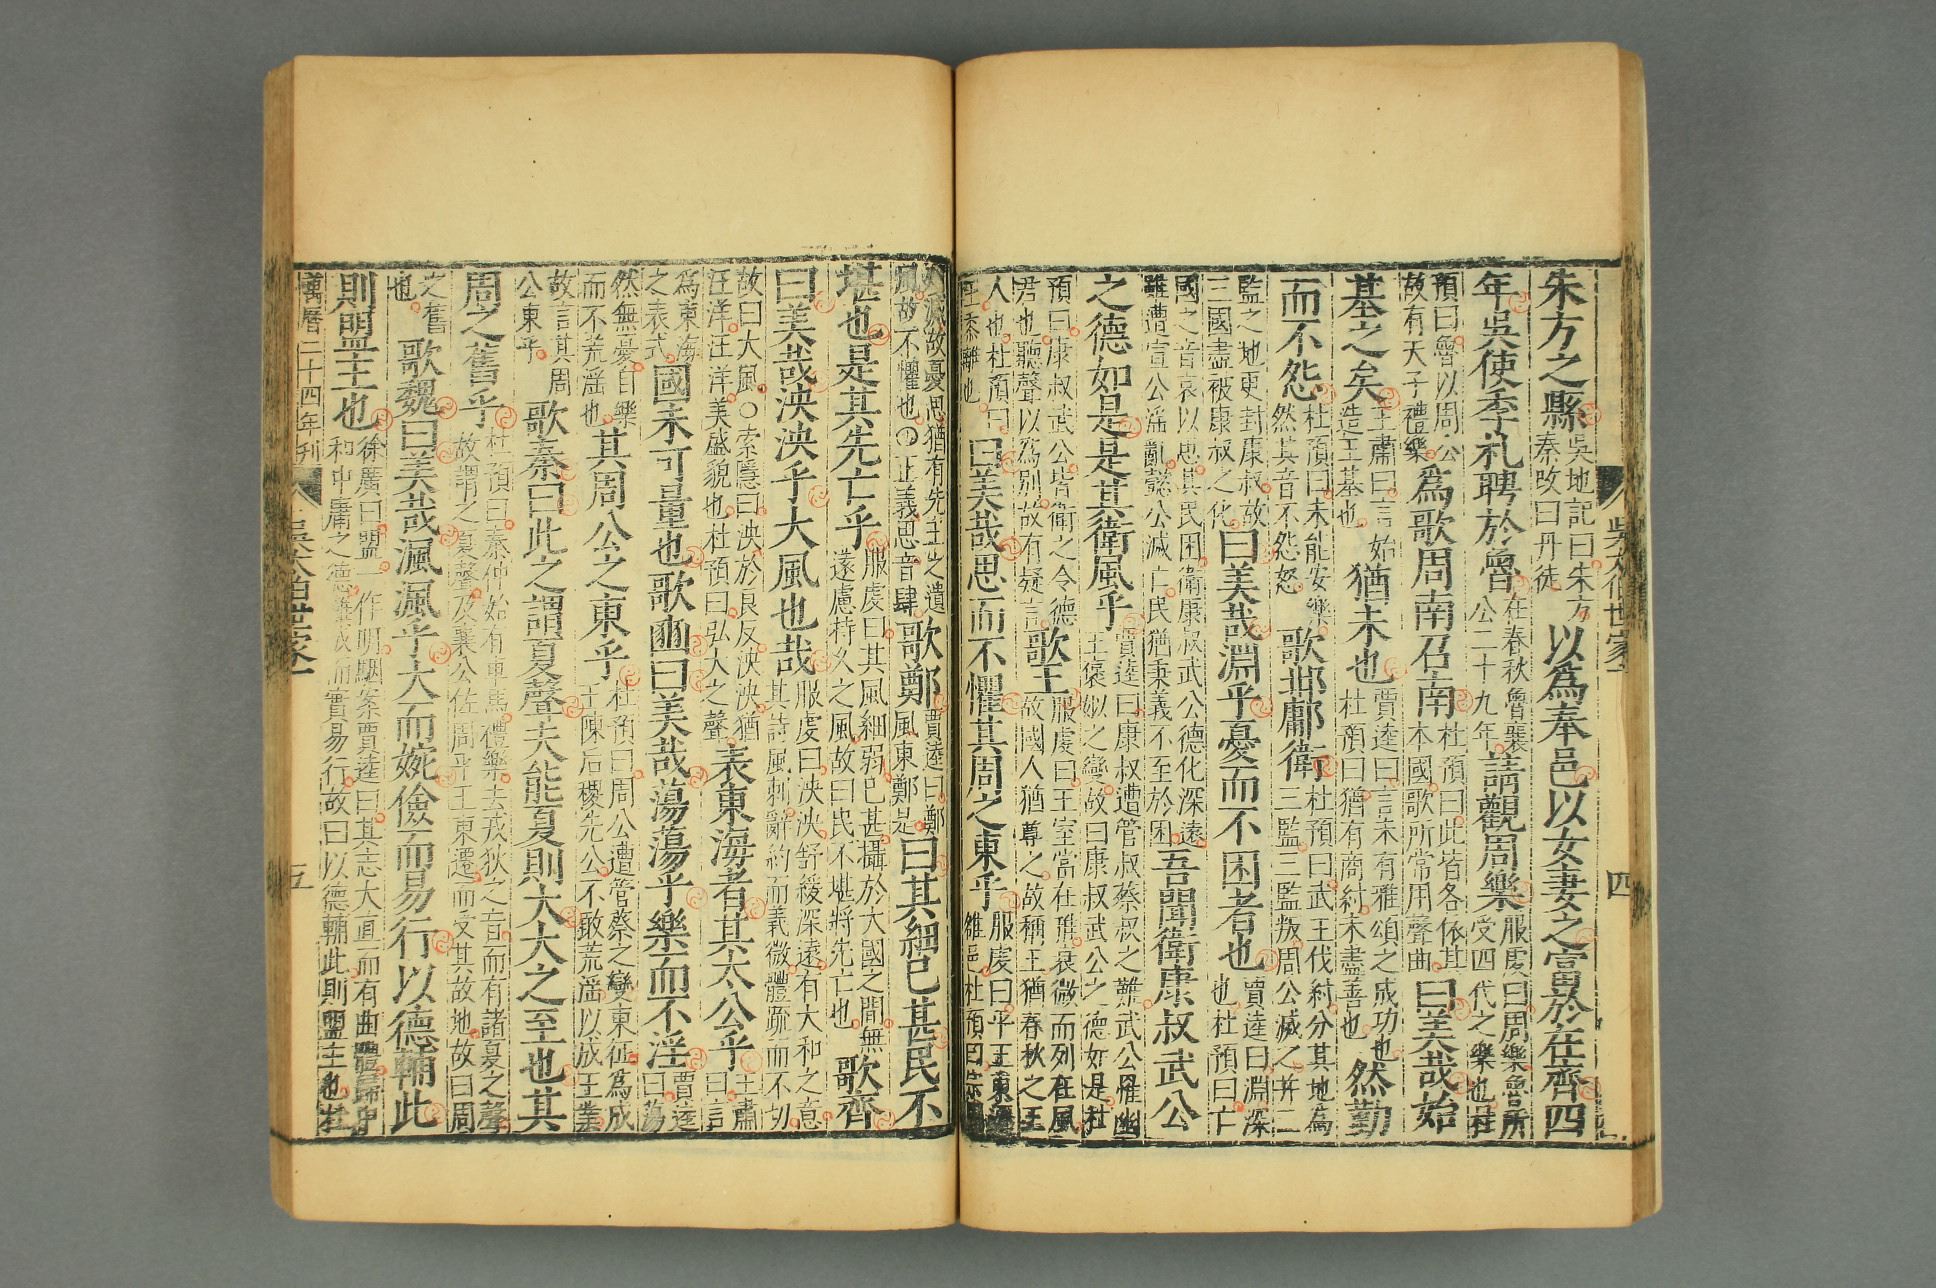 吳太伯世家一 四
朱方之縣吳地記曰朱方秦改曰丹徒以爲奉邑以女妻之富於在齊四
年吳使季札聘於魯在春秋魯襄公二十九年請觀周樂服虔曰周樂魯所受四代之樂也杜
預曰魯以周公故有天子禮樂爲歌周南召南杜預曰此皆各依其本國歌所常用聲曲曰美哉始
基之矣王肅曰言始造王基也猶未也賈逵曰言未有雅頌之成功也杜預曰猶有商紂未盡善也然勤
而不怨杜預曰未能安樂然其音不怨怒歌邶鄘衛杜預曰武王伐紂分其地爲三監三監叛周公滅之并二
監之地更封康叔故三國盡被康叔之化曰美哉淵乎憂而不困者也賈逵曰淵深也杜預曰亡
國之音哀以思其民困衛康叔武公德化深遠雖遭宣公淫亂懿公滅亡民猶秉義不至於困吾聞衛康叔武公
之德如是是其衛風乎賈逵曰康叔遭管叔蔡叔之難武公罹幽王褒姒之變故曰康叔武公之德如是杜
預曰康叔武公皆衛之令德君也聽聲以爲別故有疑言歌王服虔曰王室當在雅衰微而列在風故國人猶尊之故稱王猶春秋之王
人也杜預曰王黍離也曰美哉思而不懼其周之東乎服虔曰平王東遷雒邑杜預曰宗周
滅故憂思猶有先王之遺風故不懼也○正義思音肆歌鄭賈逵曰鄭風東鄭是曰其細已甚民不
堪也是其先亡乎服虔曰其風細弱已甚攝於大國之間無遠慮持久之風故曰民不堪將先亡也歌齊
曰美哉泱泱乎大風也哉服虔曰泱泱舒緩深遠有大和之意其詩風刺辭約而義微體疏而不切
故曰大風○索隱曰泱於良反泱泱猶汪洋汪洋美盛貌也杜預曰弘大之聲表東海者其太公乎王肅曰言
爲東海之表式國未可量也歌豳曰美哉蕩蕩乎樂而不淫賈逵曰蕩
然無憂自樂而不荒淫也其周公之東乎杜預曰周公遭管蔡之變東征爲成王陳后稷先公不敢荒淫以成王業
故言其周公東乎歌秦曰此之謂夏聲夫能夏則大大之至也其
周之舊乎杜預曰秦仲始有車馬禮樂去戎狄之音而有諸夏之聲故謂之夏聲及襄公佐周平王東遷而受其故地故曰周
之舊也歌魏曰美哉渢渢乎大而婉儉而易行以德輔此
則盟主也徐廣曰盟一作明駰案賈逵曰其志大直而有曲體歸中和中庸之德難成而實易行故曰以德輔此則盟主也杜
萬曆二十四年刊 吳太伯世家一 五